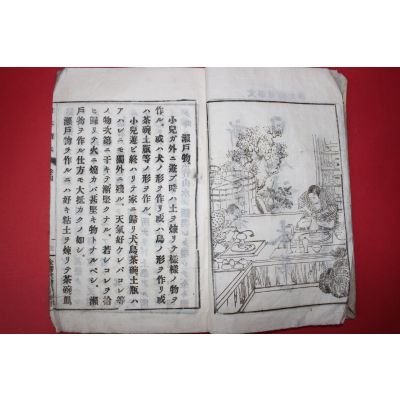 瀬戸物
小兒ガ外ニ遊ブ時ハ土ヲ煉リテ様様ノ物ヲ
作ル。或ハ犬ノ形ヲ作リ或ハ鳥ノ形ヲ作リ或
ハ茶碗土瓶等ノ形ヲ作ル。
小兒遊ビ終ハリテ家ニ歸リ犬鳥茶碗土瓶ハ
アハレニモ獨外ニ殘ル。天氣好ケレバコレ等
ノ物次第ニ干キテ漸堅クナル。若シコレヲ拾
ヒ歸リテ火ニ燒カバ甚堅キ物トナルベシ。瀬
戸物ヲ作ル仕方モ大抵カクノ如シ。
瀬戸物ヲ作ルニハ好キ粘土ヲ煉リテ茶碗皿